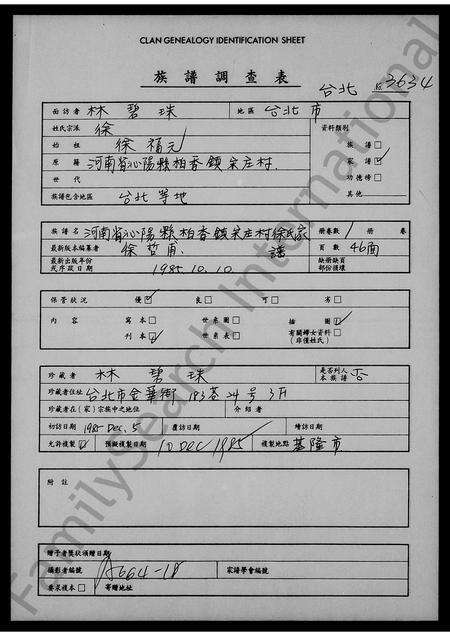 CLAN GENEALOGY IDENTIFICATION SHEET
族譜調查表
台北 № 3634
面訪者 林碧珠 地區 台北市
姓氏宗派 徐 資料類別
始祖 徐福元 族譜□
原籍 河南省沁陽縣柏香鎮宋庄村. 家譜☑
世代 功德榜□
族譜包含地區 台北等地 其他
族譜名 河南省沁陽縣柏香鎮宋庄村徐氏家譜 冊卷數 1 冊 卷
最新版本編纂者 徐哲甫. 頁數 46面
最新出版年份或序跋日期 1985.10.10 缺冊缺頁部份損壞
保管狀況 優☑ 良□ 可□ 劣□
內容 寫本□ 世系圖□ 插圖☑
刊本☑ 世系表□ 有關婦女資料□(非僅姓氏)
珍藏者 林碧珠 是否列入本族譜 否
珍藏者住址 台北市金華街183巷24号3F
珍藏者在(家)宗族中之地位 介紹者
初訪日期 1985 Dec. 5 覆訪日期 續訪日期
允許複製☑ 預擬複製日期 10 Dec 1985 複製地點 基隆市
附註
贈予者獎狀頒贈日期
攝影者編號 A664-18 家譜學會編號
要求複本□ 寄贈地址
FamilySearch International